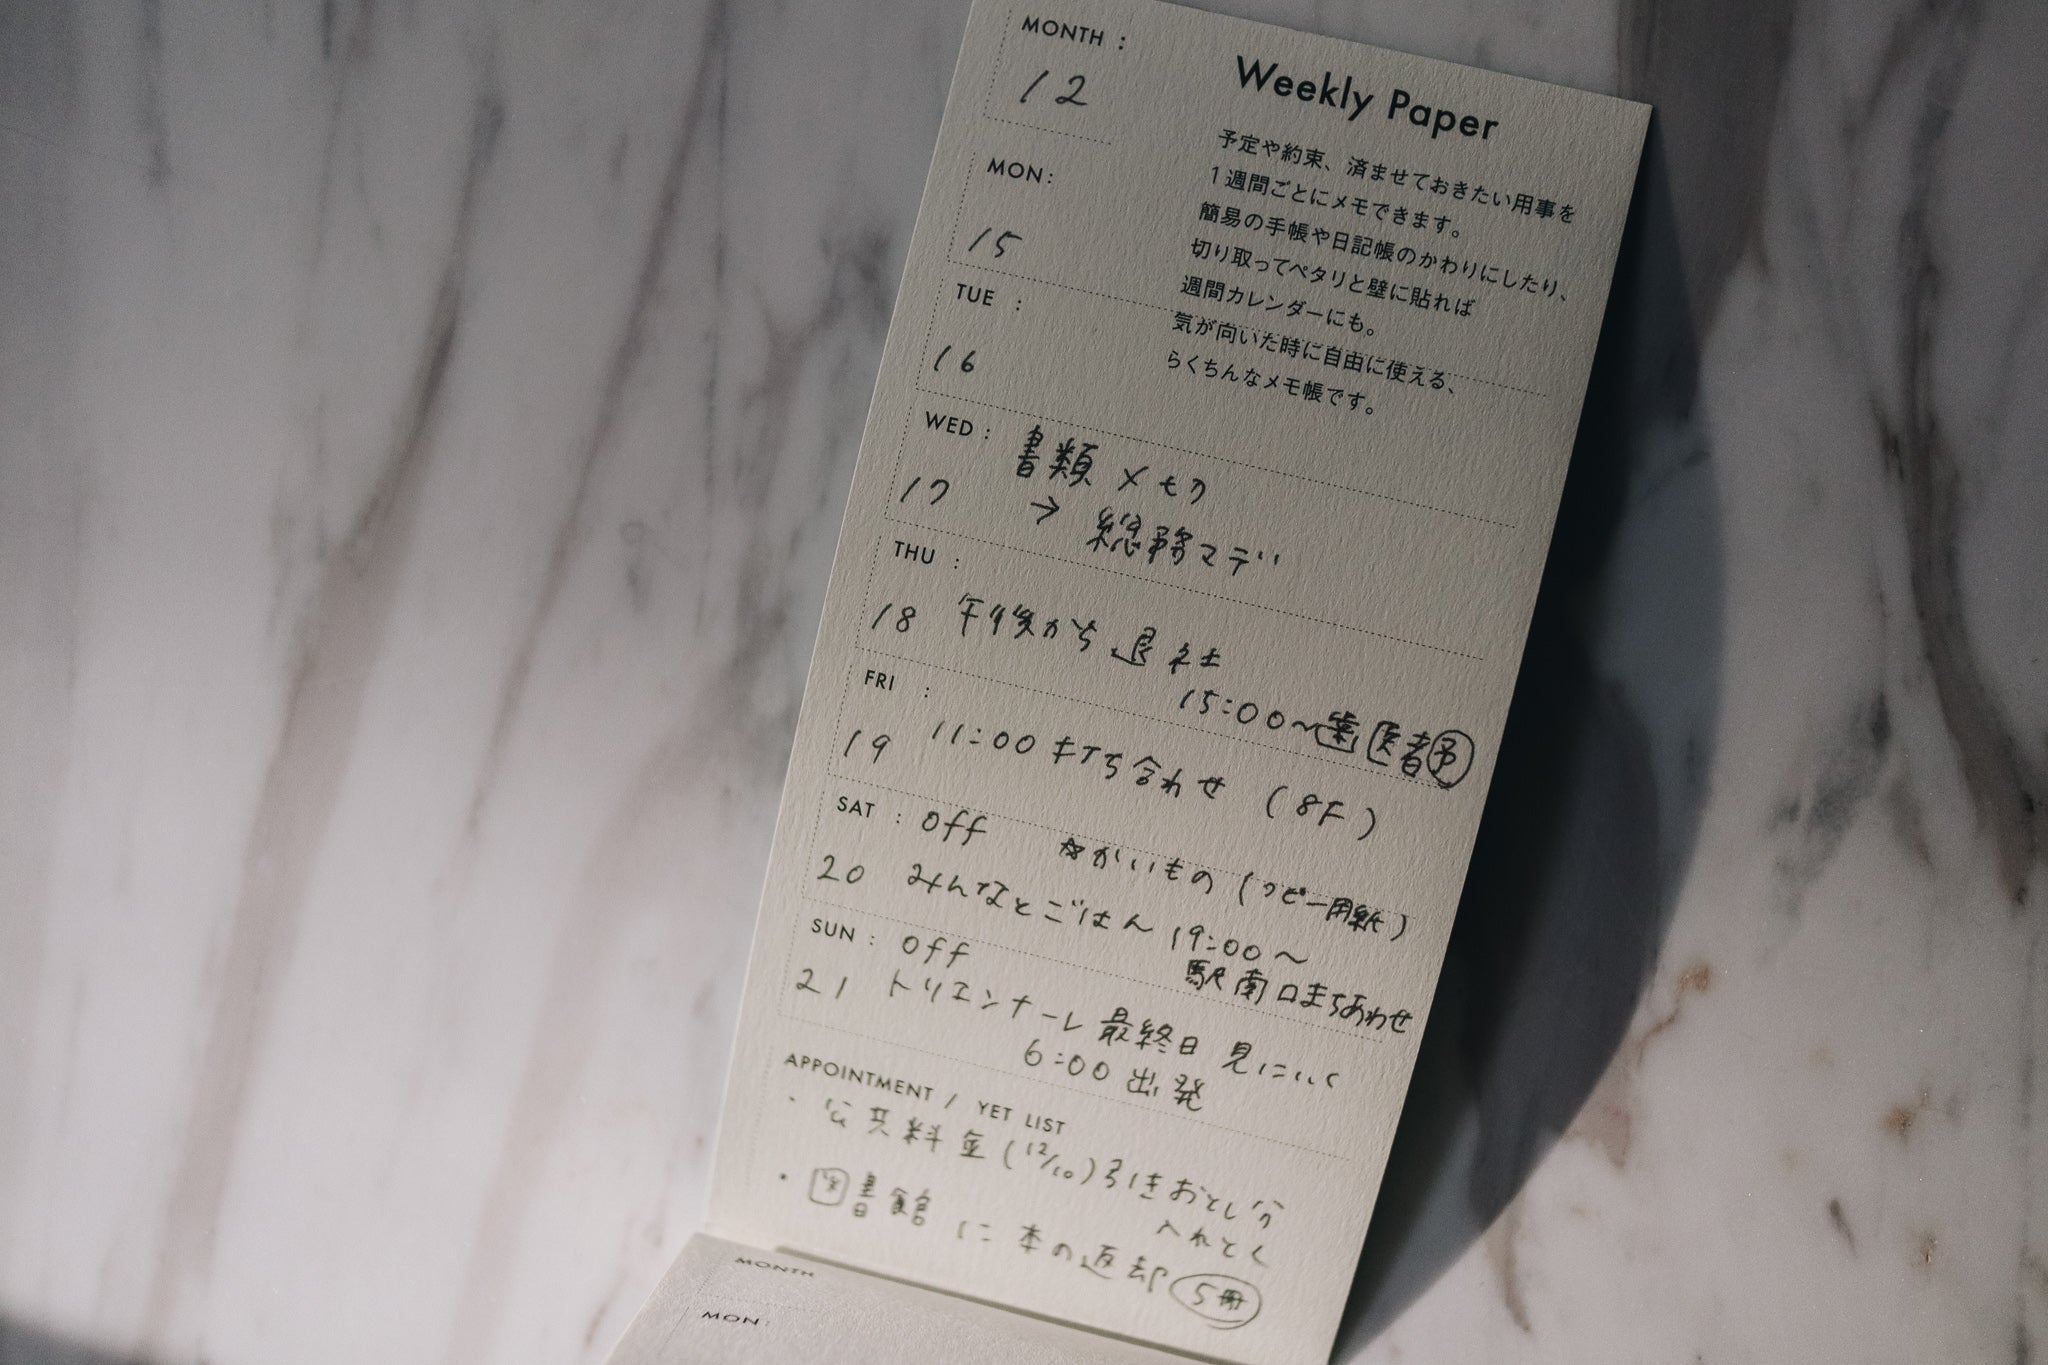 MONTH :
12
Weekly Paper
予定や約束、済ませておきたい用事を
1週間ごとにメモできます。
簡易の手帳や日記帳のかわりにしたり、
切り取ってペタリと壁に貼れば
週間カレンダーにも。
気が向いた時に自由に使える、
らくちんなメモ帳です。
MON:
15
TUE :
16
WED : 書類〆切
17 → 総務マデ
THU :
18 午後から退社
15:00〜歯医者予
FRI :
19 11:00 打ち合わせ (8F)
SAT : off ☆かいもの (コピー用紙)
20 みんなとごはん 19:00〜
駅南口まちあわせ
SUN : off
21 トリエンナーレ最終日 見にいく
6:00 出発
APPOINTMENT / YET LIST
・公共料金(12/10)引きおとし分
入れとく
・図書館に本の返却 5冊
MONTH
MON: